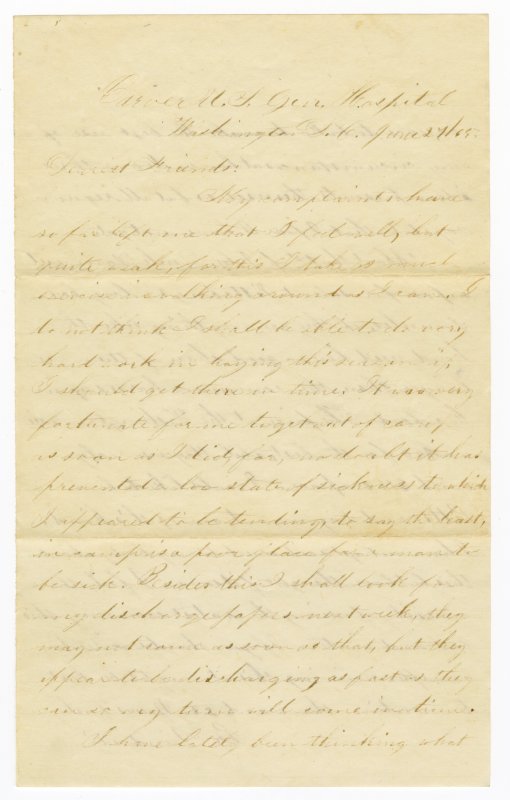 Carver U. S. Gen. Hospital
Washington D.C. June 27/65.
Dearest Friends:
My complaints have
so far left me that I feel well, but
quite weak, for this I take as much
exercise in walking around as I can. I
do not think I shall be able to do very
hard work in haying this season if
I should get there in time. It was very
fortunate for me to get out of camp
as soon as I did, for, no doubt it has
prevented a low state of sickness to which
I appeared to be tending, to say the least,
in camp is a poor place for a man to
be sick. Besides this I shall look for
my discharge papers next week, they
may not come as soon as that, but they
appear to be discharging as fast as they
can so my turn will come in time.
I have lately been thinking what